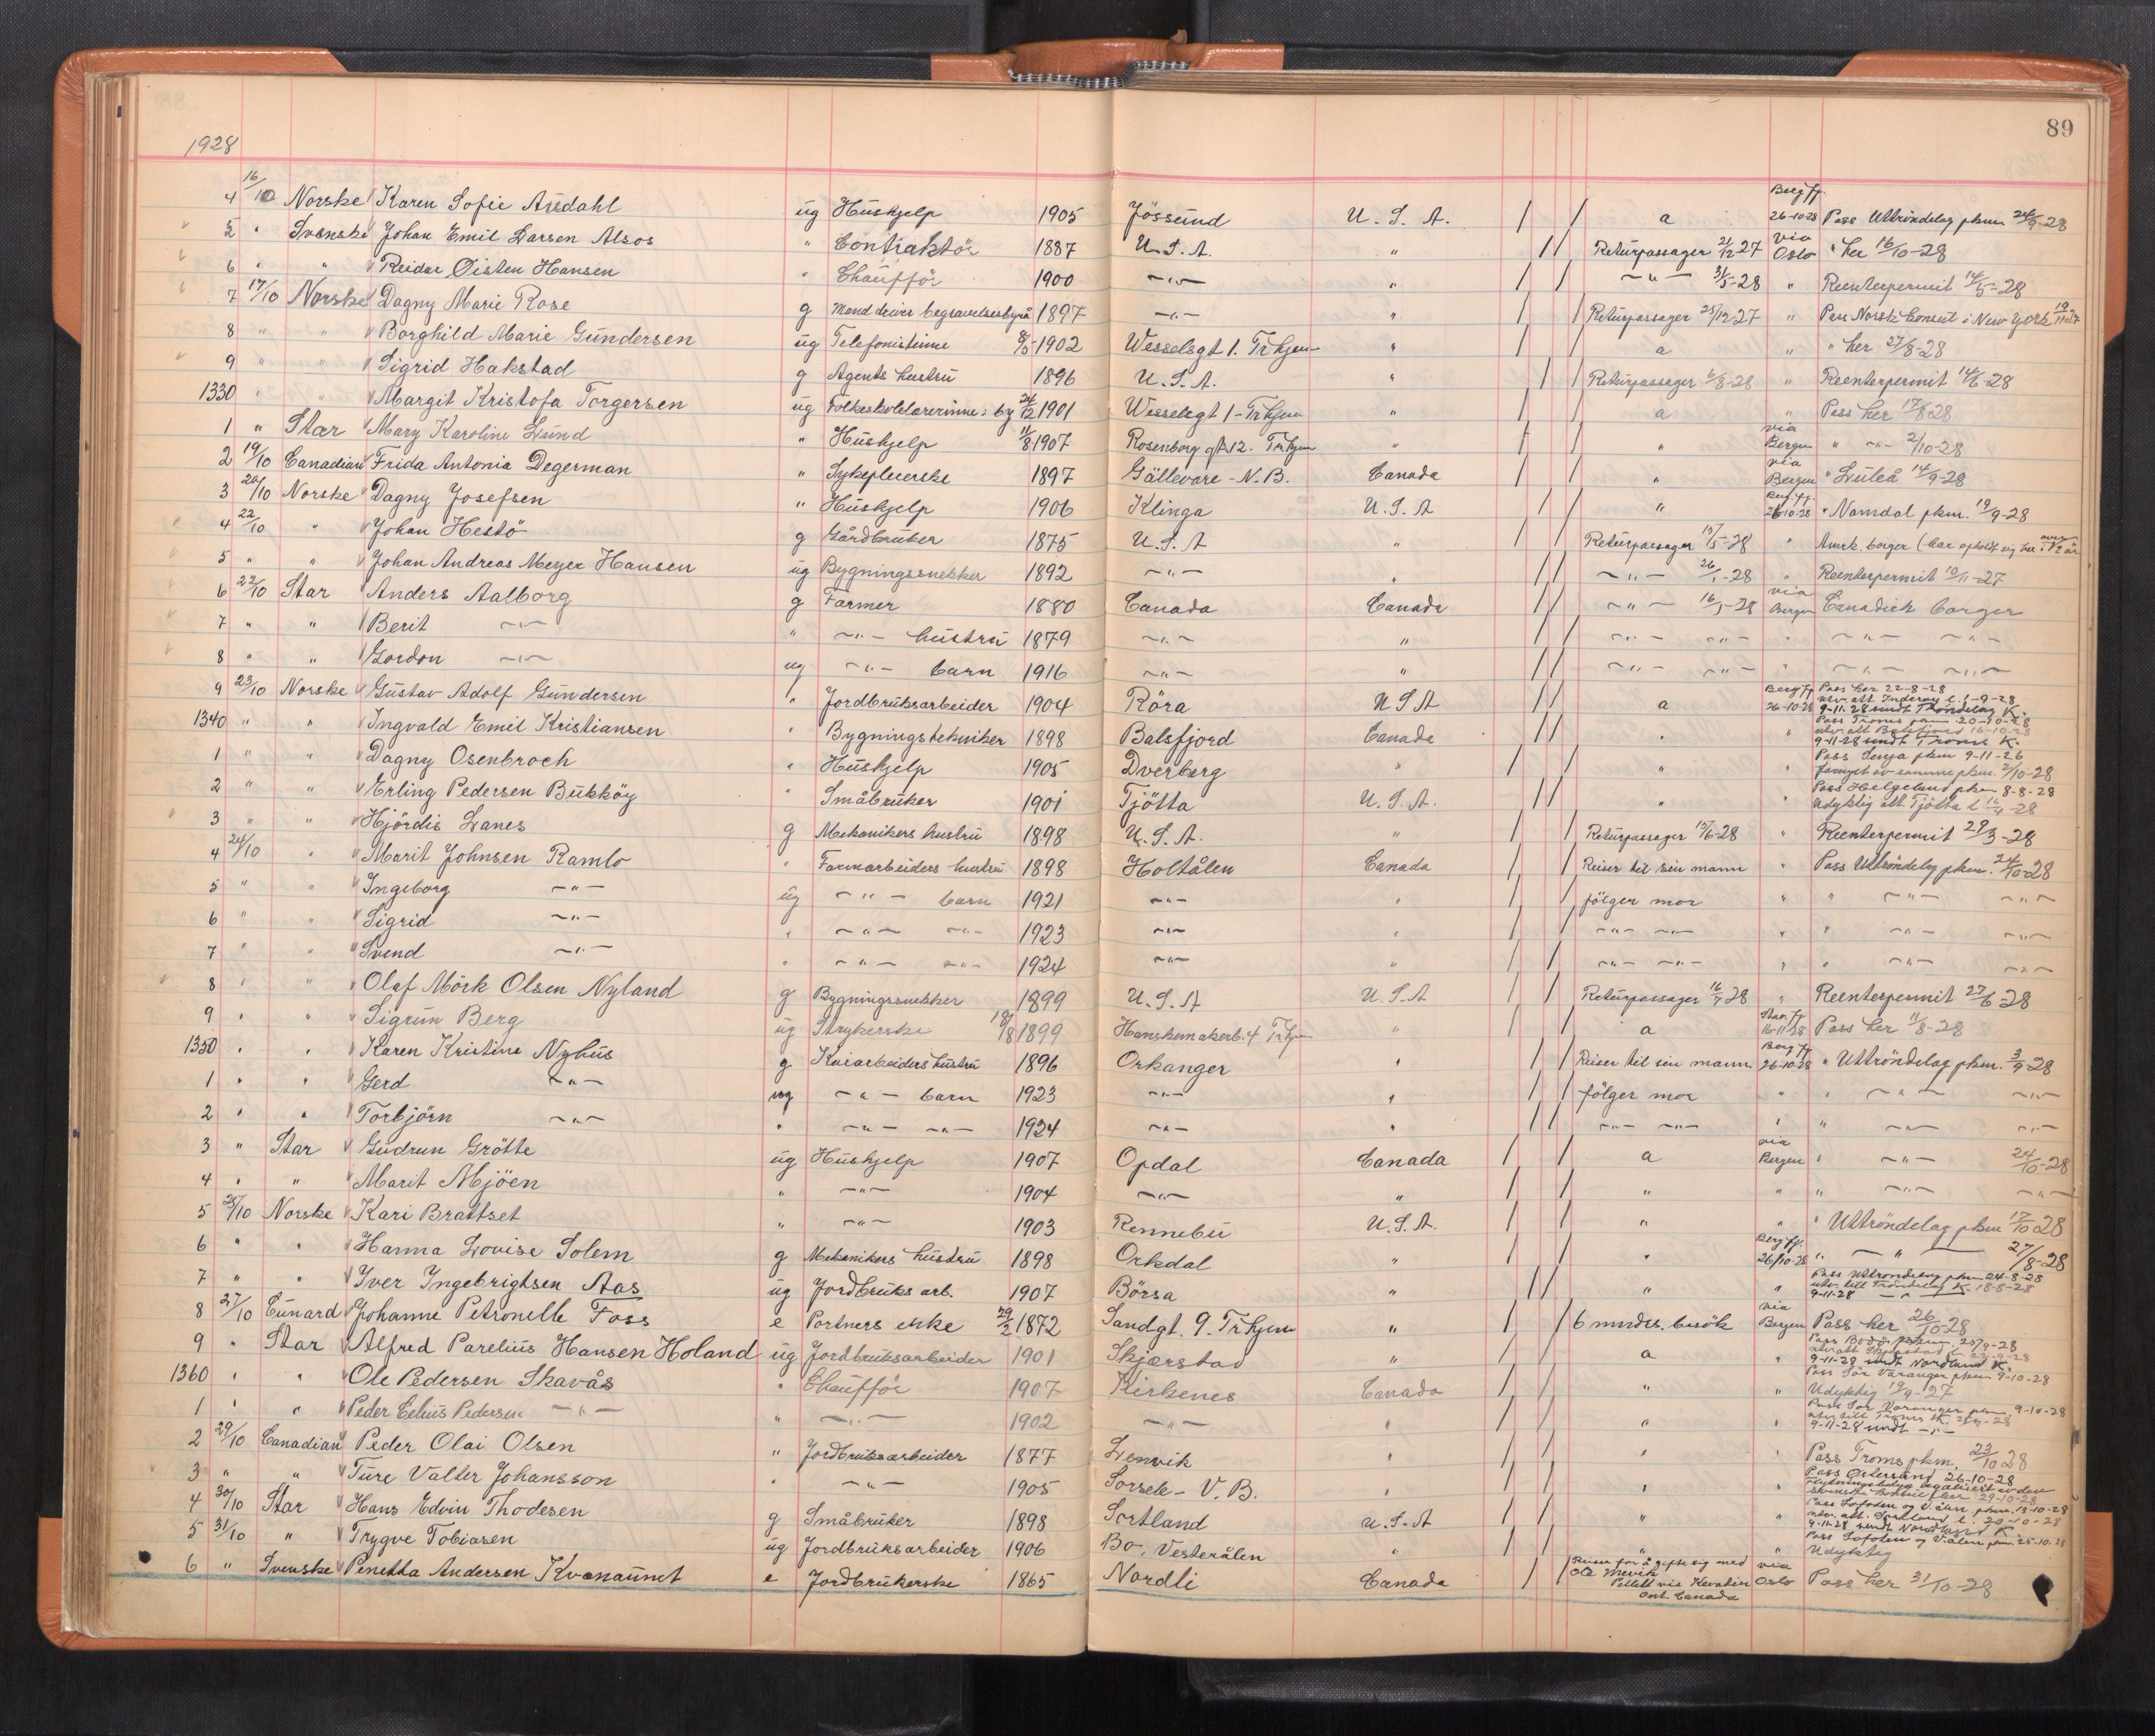 89
1928
4 16/10 Norske Karen Sofie Aŭdahl ug Hŭshjelp 1905 Jössund U. S. A. / / a Berg.fj. 26-10-28 Pass Uttröndelag pkm 24/9-28
5 " Svenske Johan Emil Larsen Alsos " Contraktör 1887 U.S.A. " / / Retŭrpassager 21/12 27 via Oslo " her 16/10-28
6 " " Reidar Øisten Hansen " Chaŭfför 1900 -"- " / / -"- 31/5-28 " Reenterpermit 14/5-28
7 17/10 Norske Dagny Marie Rose g Mand driver begravelsesbyrå 1897 -"- " / / Retŭrpassager 25/12 27 " Pass Norsk Consul i New York 19/11 27
8 " " Borghild Marie Gŭndersen ug Telefonistinne 8/5 1902 Wesselsgt 1. Trhjem " / / a " " her 27/8-28
9 " " Sigrid Hakstad g Agents hustrŭ 1896 U.S.A. " / / Retŭrpassager 6/8-28 " Reenterpermit 14/6-28
1330 " " Margit Kristofa Torgersen ug Folkeskolelærerinne i by 24/12 1901 Wesselsgt 1-Trhjem " / / a " Pass her 17/8 28
1 " Star Mary Karoline Lŭnd " Hŭshjelp 11/8 1907 Rosenborg gt. 12. Trhjem " / / " via Bergen " -"- 2/10-28
2 19/10 Canadian Frida Antonia Degerman " Sykepleierske 1897 Gällevare - N.B. Canada / / " via Bergen " Lŭleå 14/9-28
3 20/10 Norske Dagny Josefsen " Hŭshjelp 1906 Klinga U.S.A / / " Berg.fj. 26-10-28 " Namdal pkm. 19/9-28
4 22/10 " Johan Hestö g Gårdbrŭker 1875 U.S.A " / / Retŭrpassager 15/5-28 " Amrk. borger (har opholdt sig her i over 1/2 år
5 " " Johan Andreas Meyer Hansen ug Bygningssnekker 1892 -"- " / / -"- 26/1-28 " Reenterpermit 10/11-27
6 22/10 Star Anders Aalborg g Farmer 1880 Canada Canada / / -"- 16/5-28 via Bergen Canadisk borger
7 " " Berit -"- " -"- hŭstrŭ 1879 -"- " / / -"- -"- " -"- -"-
8 " " Gordon -"- ug -"- barn 1916 -"- " / / -"- -"- " -"- -"-
9 23/10 Norske Gŭstav Adolf Gŭndersen " Jordbrŭksarbeider 1904 Röra U S A / / a Berg.fj. 26-10-28 Pass her 22-8-28
utv. att Inderøy L. 1-9-28
9-11-28 sendt Tröndelag K.
1340 " " Ingvald Emil Kristiansen " Bygningstekniker 1898 Balsfjord Canada / / " " Pass Troms pkm 20-10-28
utv. att Balsfjord 16-10-28
9-11-28 sendt Troms K.
1 " " Dagny Osenbroch " Hŭshjelp 1905 Dverberg " / / " " Pass Senja pkm 9-11-26
fornyet av samme pkm. 2/10-28
2 " " Erling Pedersen Bŭkköy " Småbrŭker 1901 Tjötta U.S.A. / / " " Pass Helgeland pkm 8-8-28
Udyktig att Tjötta L
3 " " Hjördis Lanes g Mekanikers hustrŭ 1898 U.S.A. " / / Retŭrpassager 15/6-28 " Reenterpermit 29/3-28
4 24/10 " Marit Johnsen Ramlo " Farmarbeiders hustrŭ 1898 Holtålen Canada / / Reiser til sin mann " Pass Uttröndelag pkm. 24/10-28
5 " " Ingeborg -"- ug -"- barn 1921 -"- " / / fölger mor " " -"- -"-
6 " " Sigrid -"- " -"- -"- 1923 -"- " / / -"- -"- " " -"- -"-
7 " " Svend -"- " -"- -"- 1924 -"- " / / -"- -"- " " -"- -"-
8 " " Olaf Mörk Olsen Nyland g Bygningssnekker 1899 U.S.A U.S.A / / Retŭrpassager 16/7 28 " Reenterpermit 27/6-28
9 " " Sigrŭn Berg ug Strykerske 18/8 1899 Hanskemakerb. 4 Trhjem " / / a Stav.fj. 16-11-28 Pass her 11/8-28
1350 " " Karen Kristine Nyhŭs g Kaiarbeiders hŭstrŭ 1896 Orkanger " / / Reiser til sin mann Berg fj. 26-10-28 " Uttröndelag pkm. 3/9-28
1 " " Gerd -"- ug -"- barn 1923 -"- " / / fölger mor " " -"- -"-
2 " " Torbjörn -"- " -"- -"- 1924 -"- " / / -"- -"- " " -"- -"-
3 " Star Gŭdrun Grötte ug Hŭshjelp 1907 Opdal Canada / / a via Bergen " -"- 24/10-28
4 " " Marit Mjöen " -"- 1904 -"- " / / " " " -"- -"-
5 25/10 Norske Kari Brattset " -"- 1903 Rennebŭ U.S.A. / / " " " Uttröndelag pkm 17/10 28
6 " " Hanna Lovise Solem g Mekanikers hŭstrŭ 1898 Orkdal " / / " Berg.fj. 26/10-28 " -"- 27/8-28
7 " " Iver Ingebrigtsen Aas ug Jordbrŭks arb. 1907 Börsa " / / " " Pass Uttröndelag pkm 24-8-28
utv. till Tröndelag K. 18-8-28
9-11-28 -"-
8 27/10 Cŭnard Johanne Petronelle Foss e Portners enke 29/2 1872 Sandgt. 9. Trhjem " / / 6 mndrs. besök via Bergen Pass her 26/10-28
9 " Star Alfred Parelius Hansen Holand ug Jordbrŭksarbeider 1901 Skjærstad " / / a " Pass Bodö pkm 25/9-28
9-11-28 sendt Nordland K.
1360 " " Ole Pedersen Skavås " Chaŭfför 1907 Kirkenes Canada / / " " Pass Sör Varanger pkm 9-10-28
Udyktig 19/9-27
1 " " Peder Celius Pedersen -"- " -"- 1902 -"- " / / " " Pass Sör Varanger pkm. 9-10-28
9-11-28 sendt -"-
2 29/10 Canadian Peder Olai Olsen " Jordbrŭksarbeider 1877 Lenvik " / / " " Pass Troms pkm. 23/10 28
3 " " Tŭre Valter Johansson " -"- 1905 Sorsele - V. B. " / / " " Pass Östersund 26-10-28
29-10-28
4 30/10 Star Hans Edvin Thodesen g Småbrŭker 1898 Sortland U.S.A / / " " Pass Lofoten og V.ålen pkm. 13-10-28
utv. att. Sortland L. 20-10-28
9-11-28 sendt Nordland K.
5 31/10 " Trygve Tobiasen ug Jordbrŭksarbeider 1906 Bö, Vesterålen " / / " " Pass Lofoten og V.ålen pkm. 25-10-28
Udyktig
6 " Svenske Penetta Andersen Kvanaŭnet e Jordbrŭkerske 1865 Nordli Canada / / Reiser for å gifte sig med
Ole
Pellett via Kevatin
Ont. Canada via Oslo Pass her 31/10-28